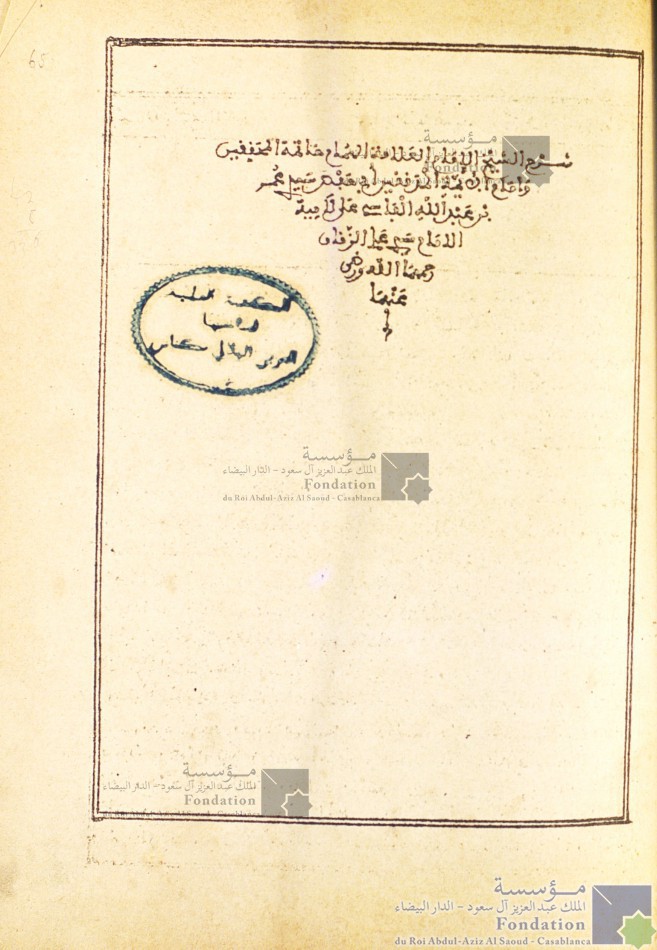 65
شرح الشيخ الإمام العلامة الهمام خاتمة المحققين
وإمام الأئمة المدققين أبي حفص سيدي عمر
بن عبد الله الفاسي على لامية
الإمام سيدي علي الزقاق
رحمهما الله ورضي
عنهما
المكتبة
الهلالي مكناس
مؤسسة
الملك عبد العزيز آل سعود - الدار البيضاء
Fondation
du Roi Abdul-Aziz Al Saoud - Casablanca
مؤسسة
الملك عبد العزيز آل سعود - الدار البيضاء
Fondation
مؤسسة
الملك عبد العزيز آل سعود - الدار البيضاء
Fondation
du Roi Abdul-Aziz Al Saoud - Casablanca